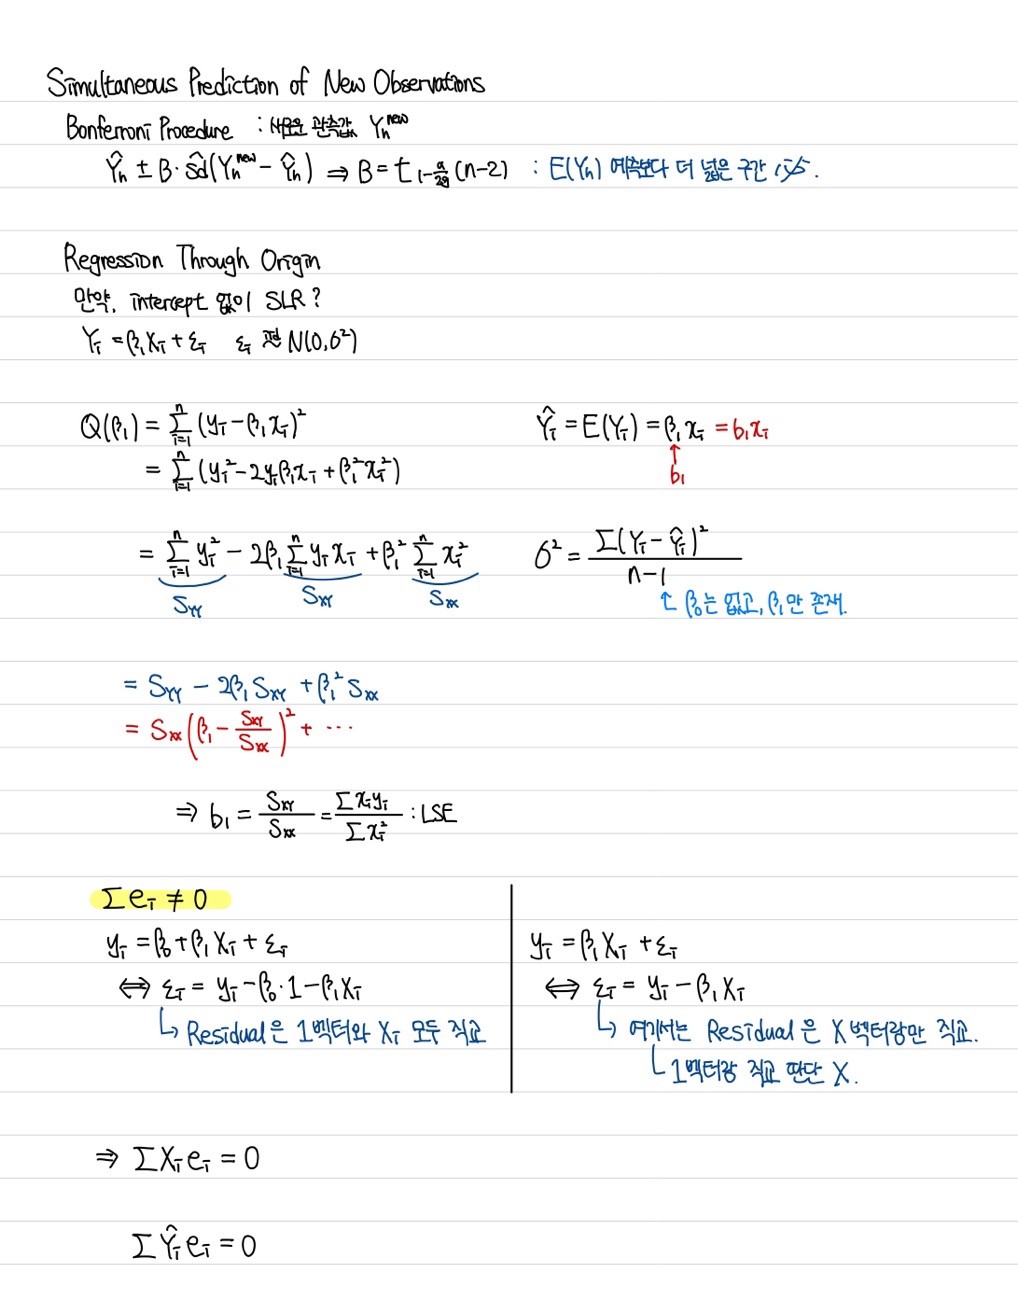 Simultaneous Prediction of New Observations
Bonferroni Procedure : 새로운 관측값 Yₕⁿᵉʷ
Ŷₕ ± B · ŝd(Yₕⁿᵉʷ - Ŷₕ) ⇒ B = t₁₋α/2g (n-2) : E(Yₕ) 예측보다 더 넓은 구간
Regression Through Origin
만약, intercept 없이 SLR?
Yᵢ = β₁Xᵢ + εᵢ εᵢ N(0,σ²)
Q(β₁) = Σᵢ₌₁ⁿ (yᵢ - β₁xᵢ)² Ŷᵢ = E(Yᵢ) = β₁xᵢ = b₁xᵢ
= Σᵢ₌₁ⁿ (yᵢ² - 2yᵢβ₁xᵢ + β₁²xᵢ²) ↑ b₁
= Σᵢ₌₁ⁿ yᵢ² - 2β₁ Σᵢ₌₁ⁿ yᵢxᵢ + β₁² Σᵢ₌₁ⁿ xᵢ² σ² = Σ(Yᵢ - Ŷᵢ)² / n-1
S_YY S_XY S_XX ↑ β₀는 없고, β₁만 존재.
= S_YY - 2β₁S_XY + β₁²S_XX
= S_XX(β₁ - S_XY/S_XX)² + ⋯
⇒ b₁ = S_XY/S_XX = Σxᵢyᵢ/Σxᵢ² : LSE
Σeᵢ ≠ 0
yᵢ = β₀ + β₁Xᵢ + εᵢ
⇔ εᵢ = yᵢ - β₀·1 - β₁Xᵢ
↳ Residual은 1벡터와 Xᵢ 모두 직교
yᵢ = β₁Xᵢ + εᵢ
⇔ εᵢ = yᵢ - β₁Xᵢ
↳ 여기서는 Residual은 X벡터랑만 직교.
↳ 1벡터랑 직교 판단 X.
⇒ ΣXᵢeᵢ = 0
ΣŶᵢeᵢ = 0